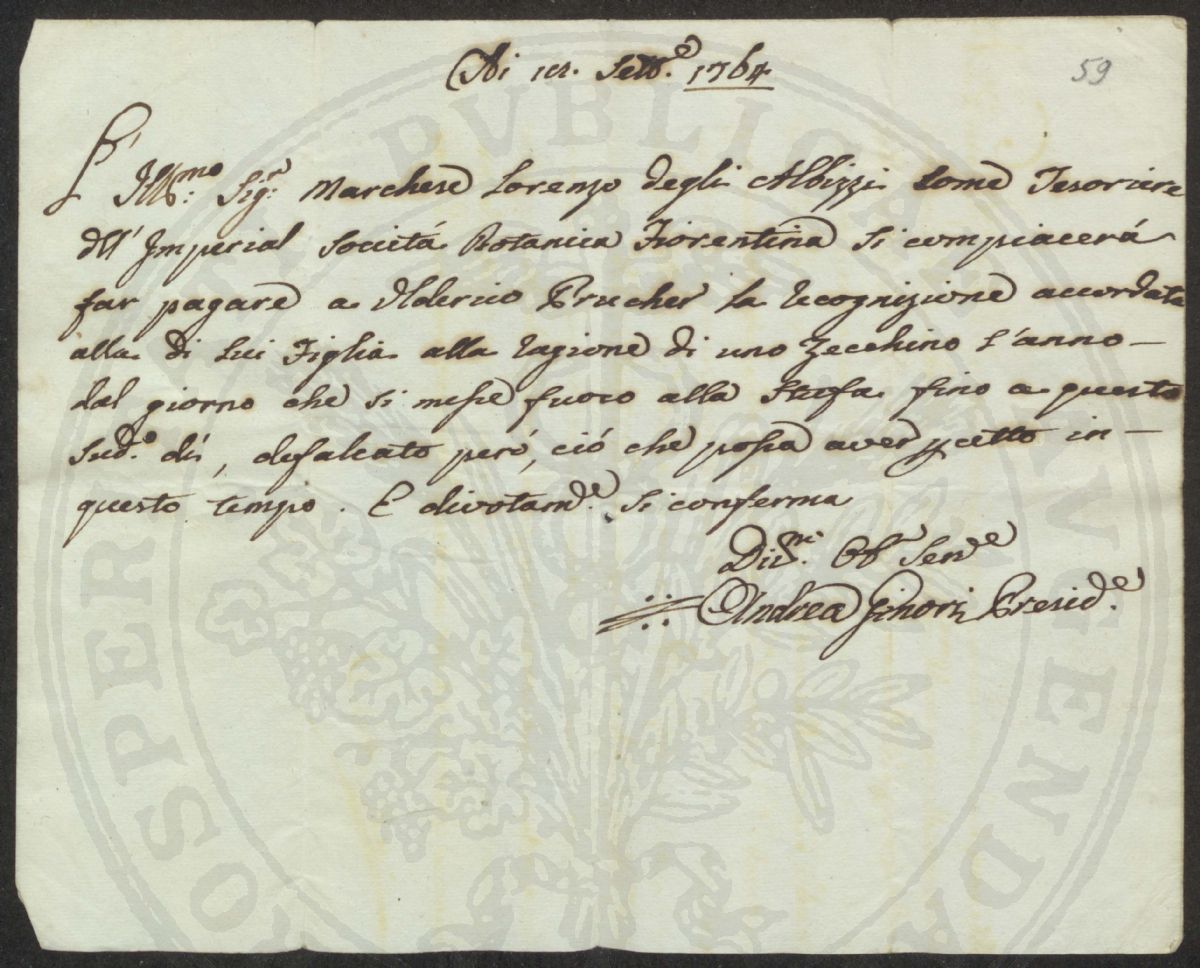 Ai 12. Sett.e 1764
59
L' Ill.mo Sig.r Marchese Lorenzo degli Albizzi come Tesoriere
dell' Imperial Societá Botanica Fiorentina si compiacerá
far pagare a Alderico Prucher la recognizione accordata
alla di lui Figlia alla ragione di uno Zecchino l'anno —
dal giorno che si messe fuoco alla Stufa fino a questo
sud.o dí, defalcato peró, ció che possa aver in —
questo tempo. E divotam.e si conferma
Div.mo Obb Serv.e
Andrea Ginori Presid.e
PROSPERITATI PVBLICAE AVGENDAE